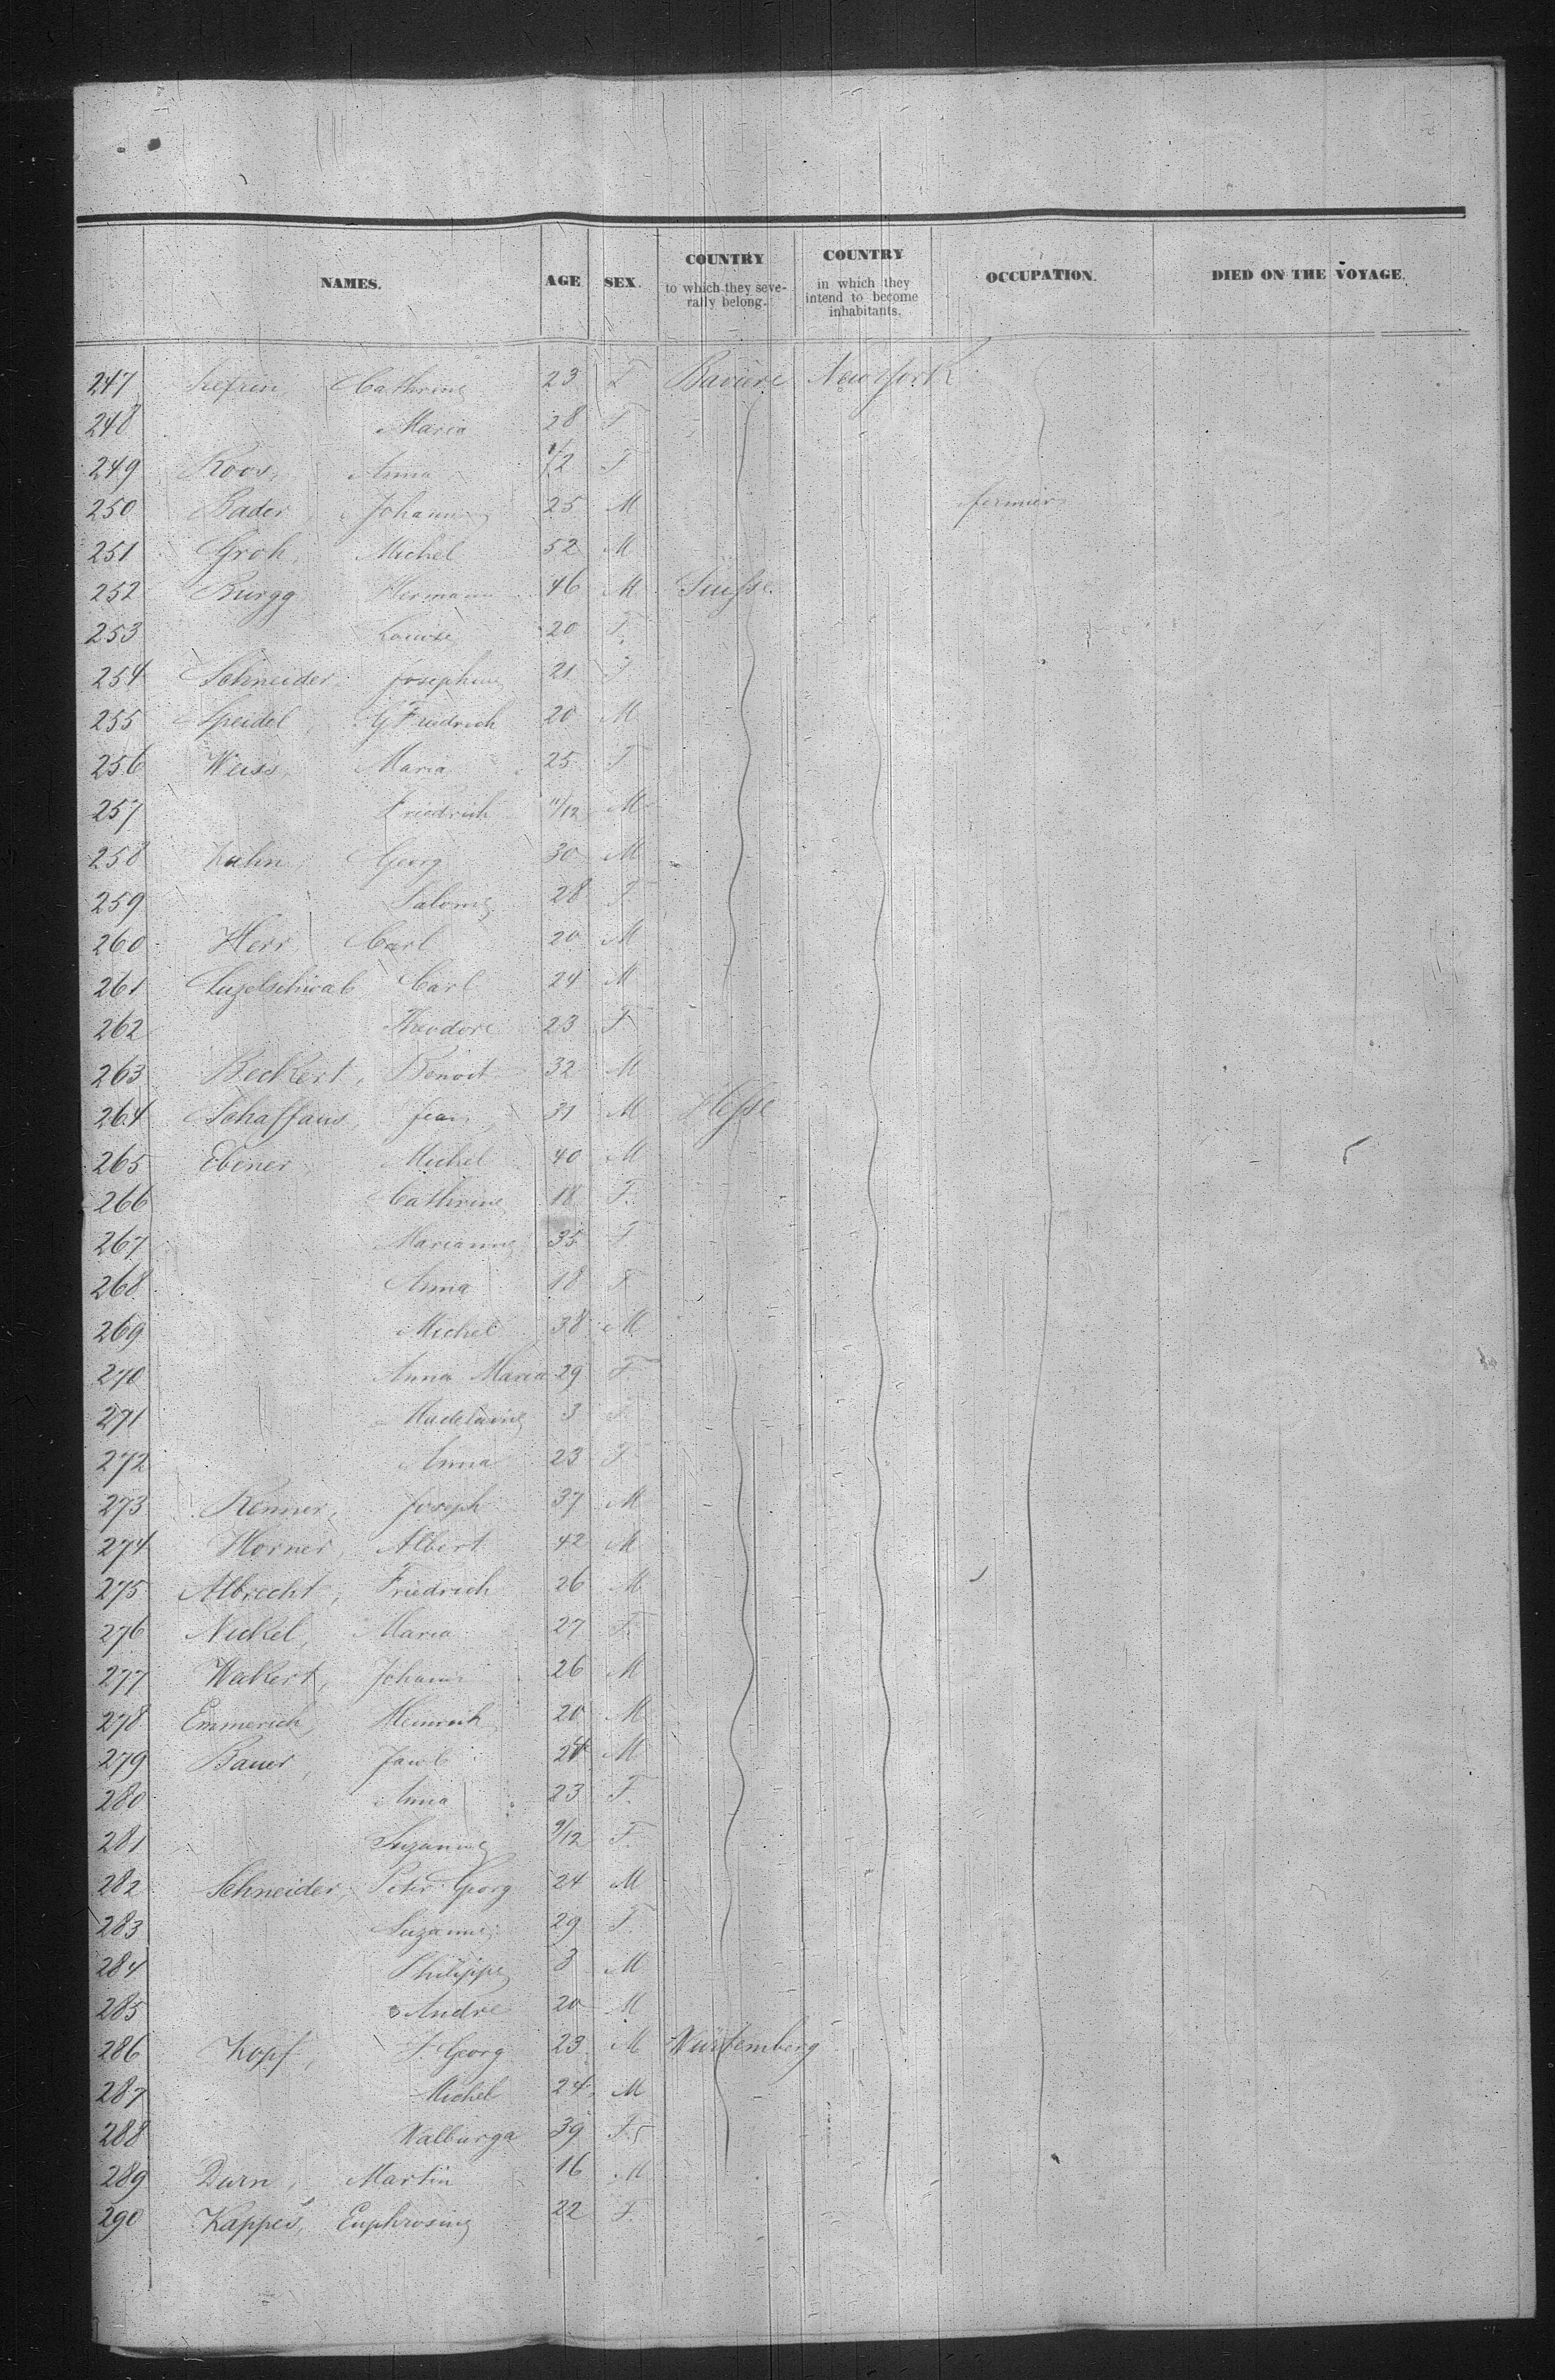 NAMES. AGE SEX. COUNTRY to which they seve- rally belong. COUNTRY in which they intend to become inhabitants. OCCUPATION. DIED ON THE VOYAGE.
247 Cathrine 23 F Baviere New York
248 Maria 28 F
249 Roos, Anna F
250 Bader, Johann 25 M fermier
251 Groh, Michel 52 M
252 Burgg Hermann 46 M Suisse
253 Louise 20 F.
254 Schneider, Josephine 21 F
255 Speidel, G Friedrich 20 M
256 Weiss, Maria 25 F
257 Friedrich 11/12 M
258 Kuhn, Georg 30 M
259 Salome 28 F.
260 Herr, Carl 20 M
261 Luzelschwab Carl 24 M
262 Theodore 23 F
263 Beckert, Benoit 32 M
264 Schaffaus, Jean, 31 M Hesse
265 Ebener, Michel 40 M
266 Cathrine 18 F.
267 Marianne 35 F
268 Anna 18 F
269 Michel 38 M
270 Anna Maria 29 F.
271 Madelaine 3 F
272 Anna 23 F
273 Renner, Joseph 37 M
274 Horner, Albert 42 M
275 Albrecht, Friedrich 26 M
276 Nickel, Maria 27 F.
277 Johann 26 M
278 Emmerich, Heinrich 20 M
279 Bauer, Jacob 24 M
280 Anna 23 F.
281 Suzanne 9/12 F.
282 Schneider, Peter Georg 24 M
283 Suzanne 29 F.
284 Philippe 3 M
285 Andre 20 M
286 Kopf, J. Georg 23 M Würtemberg
287 Michel 24 M
288 Walburga 39 F.
289 Durn, Martin 16 M
290 Kappes, Euphrosine 22 F.